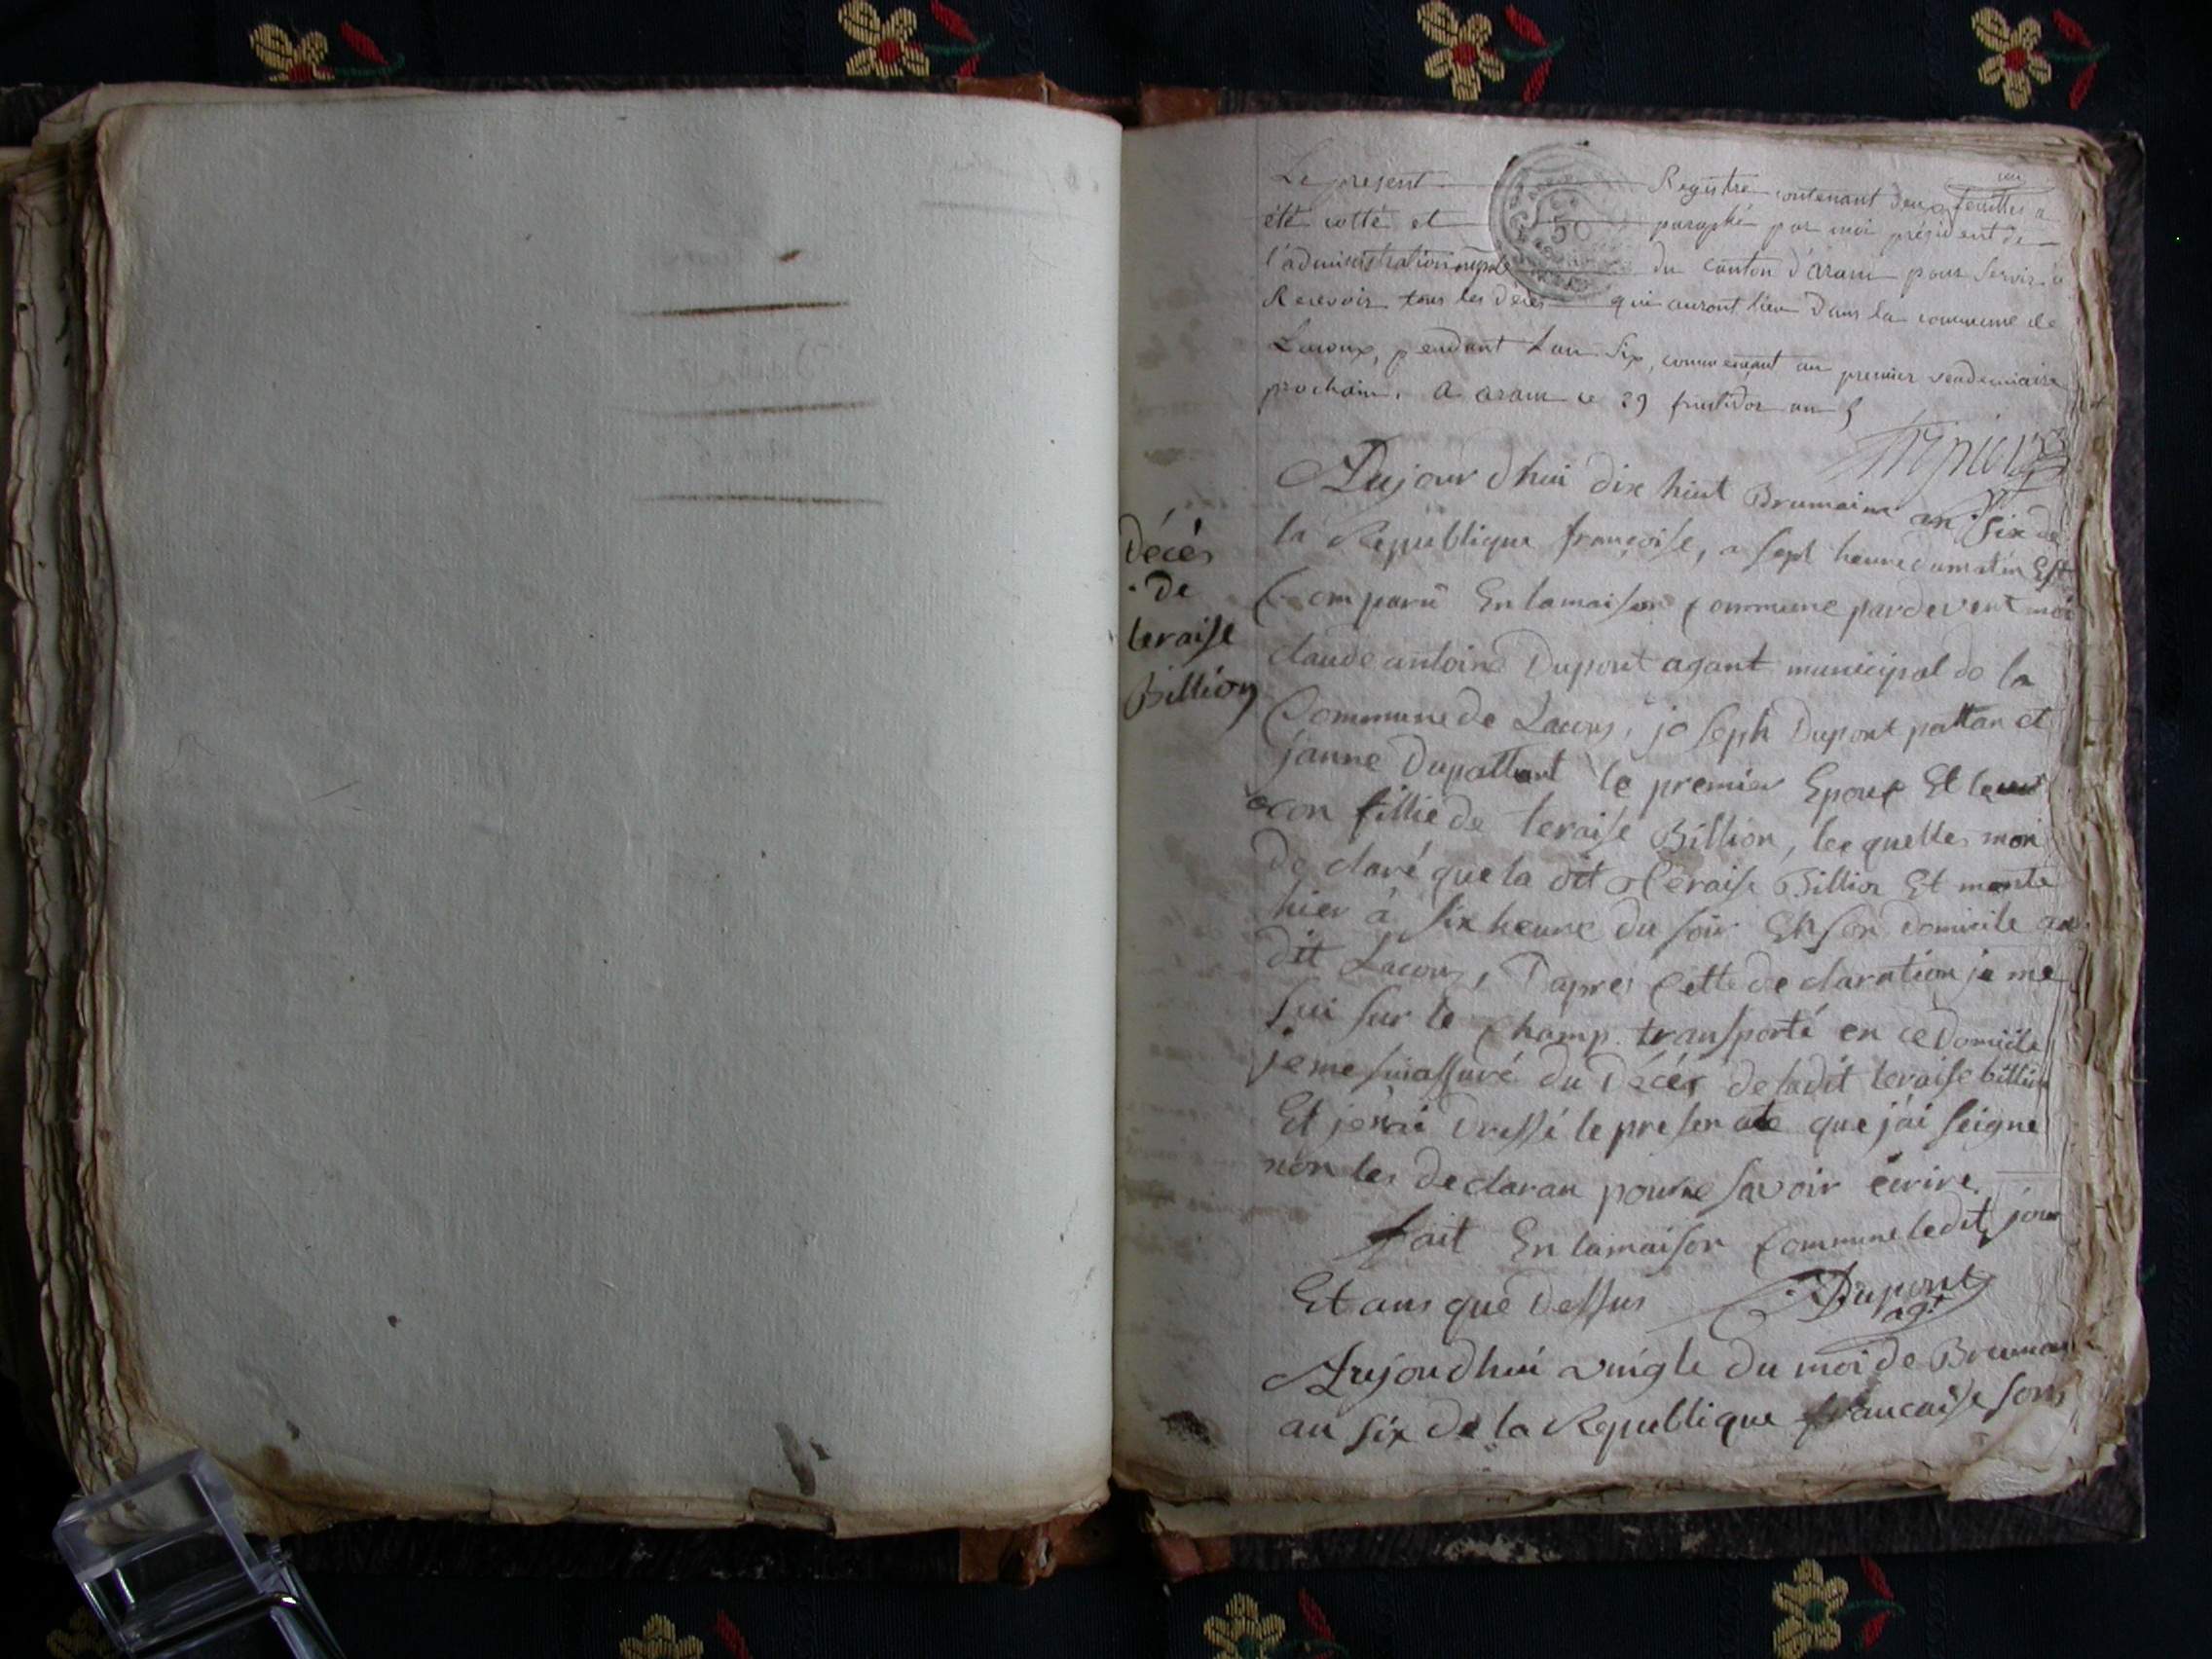 Le present Registre contenant deux feuilles a
été cotté et paraphé par moi président de
l'administration du canton d'aram pour servir a
Recevoir tous les décès qui auront lieu dans la commune de
Lacoux, pendant l'an six, commençant au premier vendemiaire
prochain. a aram ce 29 fructidor an 5
50
Aujour dhui dix huit Brumaire an Six de
la République françoise, a sept heure dumatin Est
Comparu En lamaison Commune pardevent moi
claude antoine Dupont agant municipal de la
Commune de Lacoux, joseph Dupont pattan et
janne Dupattant le premier Epoux Et
fillie de teraise Billion, lesquelles mon
de claré que la dit Teraise Billion Et monte
hier à six heure du soir En son domicile au
dit Lacoux, Dapres Cette de claration je me
sui sur le champ transporté en ce Domicile
je me sui assuré du Décés de ladit teraise billion
Et j'en ai Dressé le presen acte que j'ai seigne
non les declaran pour ne savoir écrire.
fait En lamaison Commune ledit jour
Et ans que Dessus Dupont
agt
Aujoudhui vingte du moi de Brumair
an six de la Republique francaise
Décés
de
teraise
Billion